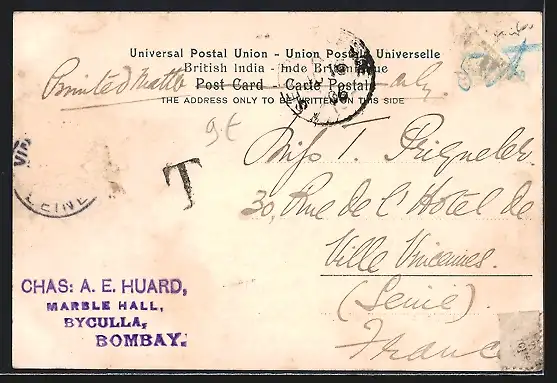 Universal Postal Union - Union Postale Universelle
British India - Inde Britannique
Printed Matter only.
Post Card - Carte Postale
THE ADDRESS ONLY TO BE WRITTEN ON THIS SIDE
T
Miss T. Priqueler
30, Rue de l'Hotel de
Ville Vincennes.
(Seine)
France
CHAS: A. E. HUARD,
MARBLE HALL,
BYCULLA,
BOMBAY.